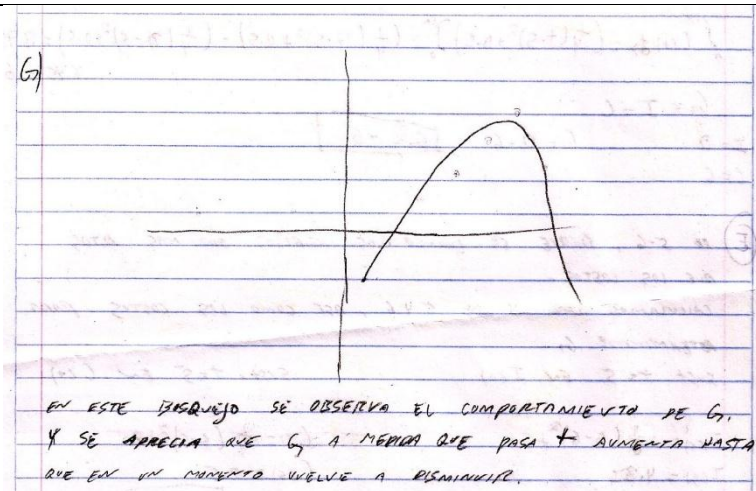 G)
EN ESTE BOSQUEJO SE OBSERVA EL COMPORTAMIENTO DE G.
Y SE APRECIA QUE G, A MEDIDA QUE PASA t AUMENTA HASTA
QUE EN UN MOMENTO VUELVE A DISMINUIR.